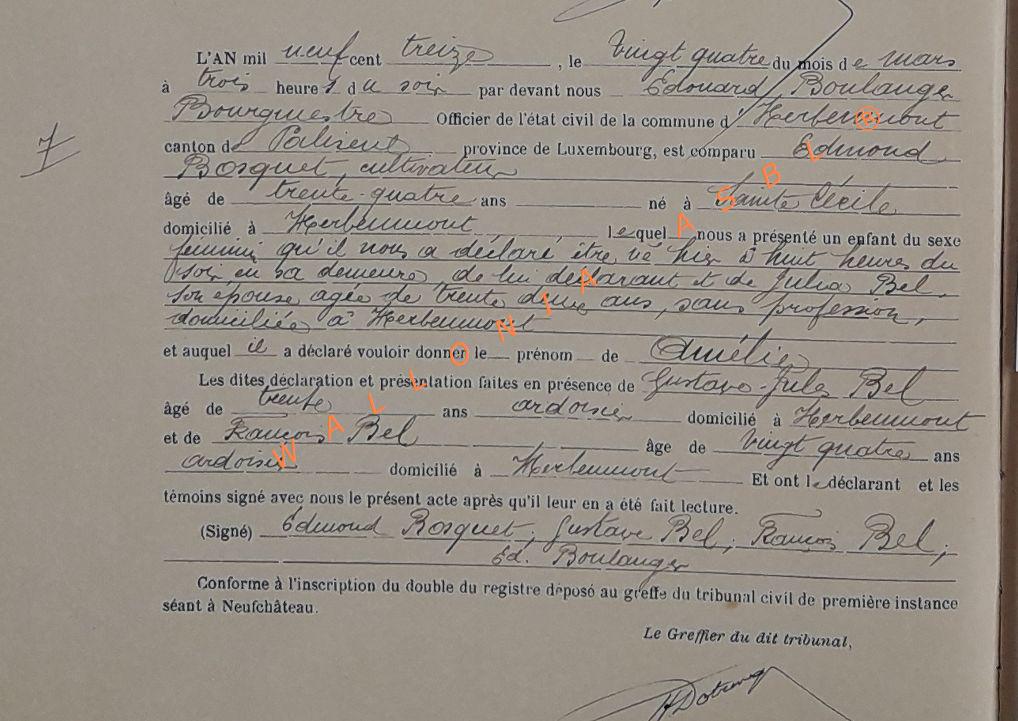 L'AN mil neuf cent treize, le vingt quatre du mois de mars
à trois heures du soir par devant nous Edouard Boulanger
Bourgmestre Officier de l'état civil de la commune d'Herbeumont
canton de Paliseul province de Luxembourg, est comparu Edmond
Bosquet, cultivateur
âgé de trente-quatre ans né à Sainte Cécile
domicilié à Herbeumont, lequel nous a présenté un enfant du sexe
feminin qu'il nous a déclaré être né hier à huit heures du
soir en sa demeure de lui déclarant et de Julia Bel,
son épouse agée de trente deux ans, sans profession,
domiciliée à Herbeumont
et auquel il a déclaré vouloir donner le prénom de Amélie
Les dites déclaration et présentation faites en présence de Gustave-Jules Bel
âgé de trente ans ardoisier domicilié à Herbeumont
7
et de François Bel âge de vingt quatre ans
ardoisier domicilié à Herbeumont Et ont le déclarant et les
témoins signé avec nous le présent acte après qu'il leur en a été fait lecture.
(Signé) Edmond Bosquet, Gustave Bel, François Bel,
Ed. Boulanger
Conforme à l'inscription du double du registre déposé au greffe du tribunal civil de première instance
séant à Neufchâteau.
Le Greffier du dit tribunal,
WALLONIA ASBL ®